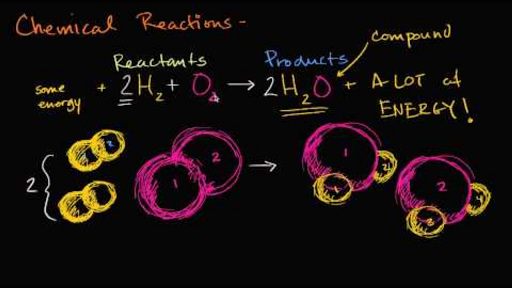 Chemical Reactions -
Reactants Products compound
some energy + 2H₂ + O₂ → 2H₂O + A LOT of ENERGY!
2 1 2 → 1 2 2 3 4